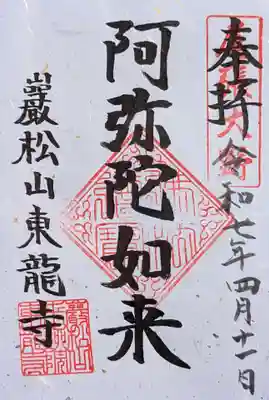 奉拝
令和七年四月十一日
阿弥陀如来
巖松山東龍寺